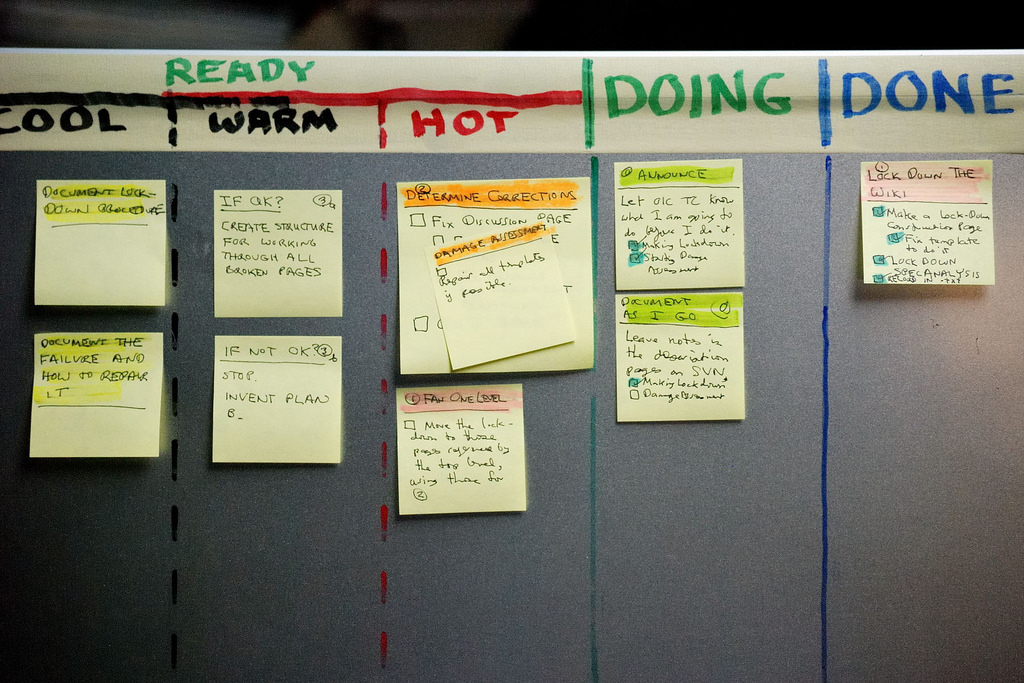 READY
COOL
WARM
HOT
DOING
DONE
DOCUMENT LOCK-
DOWN PROCEDURE
DOCUMENT THE
FAILURE AND
HOW TO REPAIR
IT
IF OK? 3a
CREATE STRUCTURE
FOR WORKING
THROUGH ALL
BROKEN PAGES
IF NOT OK? 3b
STOP.
INVENT PLAN
B_
2
DETERMINE CORRECTIONS
FIX DISCUSSION PAGE
DAMAGE ASSESSMENT
Repair all templates
if possible.
1 FAN ONE LEVEL
Move the lock-
down to those
pages referenced by
the top level,
using those for
2
0 ANNOUNCE
Let OIC TC know
what I am going to
do before I do it.
Making Lockdown
Starting Damage
Assessment
DOCUMENT
AS I GO 0
Leave notes in
the description
pages on SVN
Making Lockdown
Damage Assessment
1
LOCK DOWN THE
WIKI
Make a Lock-Down
Construction Page
Fix template
to do it
LOCK DOWN
SPECANALYSIS
RECORD IN .txt